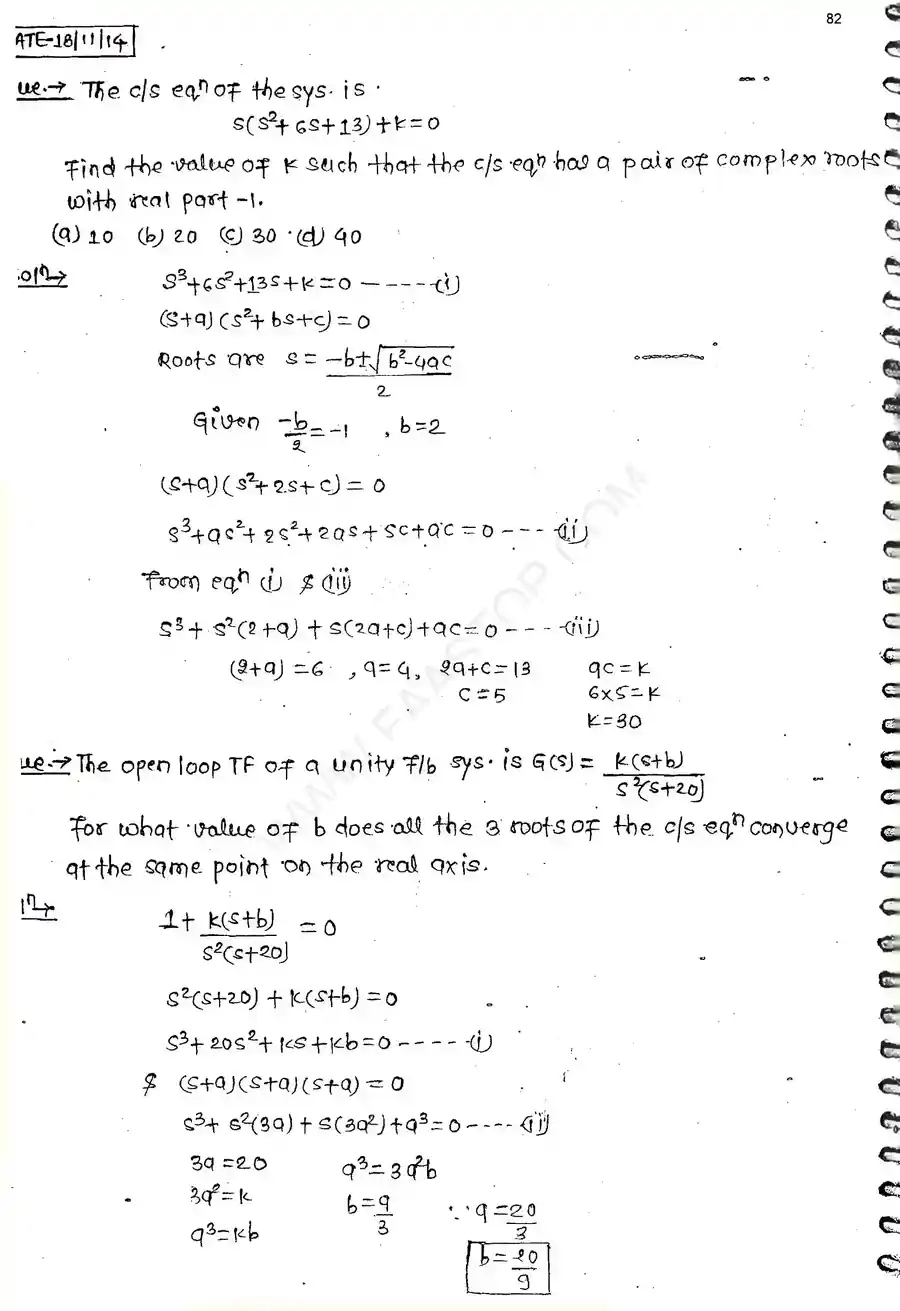 82
ATE-18/11/14
ue.→ The c/s eqⁿ of the sys. is.
s(s²+6s+13)+k=0
Find the value of k such that the c/s eqⁿ has a pair of complex roots
with real part -1.
(a) 10 (b) 20 (c) 30 (d) 40
olⁿ→
s³+6s²+13s+k=0 ----- (i)
(s+a)(s²+bs+c)=0
Roots are s = -b±√b²-4ac / 2
Given -b/2 = -1 , b=2
(s+a)(s²+2s+c) = 0
s³+as²+2s²+2as+sc+ac=0 ---- (ii)
From eqⁿ (i) & (iii)
s³+s²(2+a)+s(2a+c)+ac=0 ---- (iii)
(2+a)=6 , a=4, 2a+c=13 ac=k
c=5 6x5=k
k=30
ue.→ The open loop TF of a unity f/b sys. is G(s) = k(s+b) / s²(s+20)
For what value of b does all the 3 roots of the c/s eqⁿ converge
at the same point on the real axis.
lⁿ→
1+ k(s+b) / s²(s+20) = 0
s²(s+20)+k(s+b)=0
s³+20s²+ks+kb=0 ----- (i)
& (s+a)(s+a)(s+a)=0
s³+s²(3a)+s(3a²)+a³=0 ---- (ii)
3a=20 a³=3a²b
3a²=k b=a/3 ∵ a=20/3
a³=kb
b=20/9
WWW.FAASTOP.COM